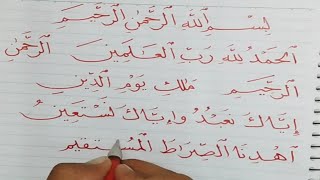 بِسْمِ اللَّهِ الرَّحْمَٰنِ الرَّحِيمِ
الْحَمْدُ لِلَّهِ رَبِّ الْعَالَمِينَ الرَّحْمَٰنِ
الرَّحِيمِ مَالِكِ يَوْمِ الدِّينِ
إِيَّاكَ نَعْبُدُ وَإِيَّاكَ نَسْتَعِينُ
اهْدِنَا الصِّرَاطَ الْمُسْتَقِيم